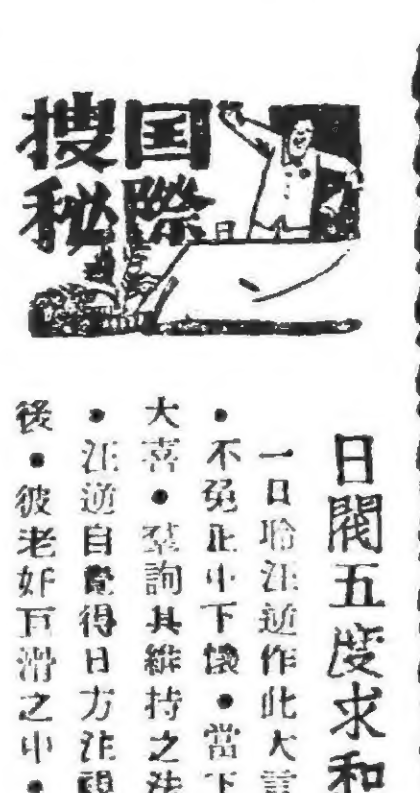 国際
搜秘
日閥五度求和
一日聆汪逆作此大言
•不免正中下懷•當下
大喜•羣詢其維持之法
•汪逆自覺得日方注視
後•彼老奸巨滑之中•